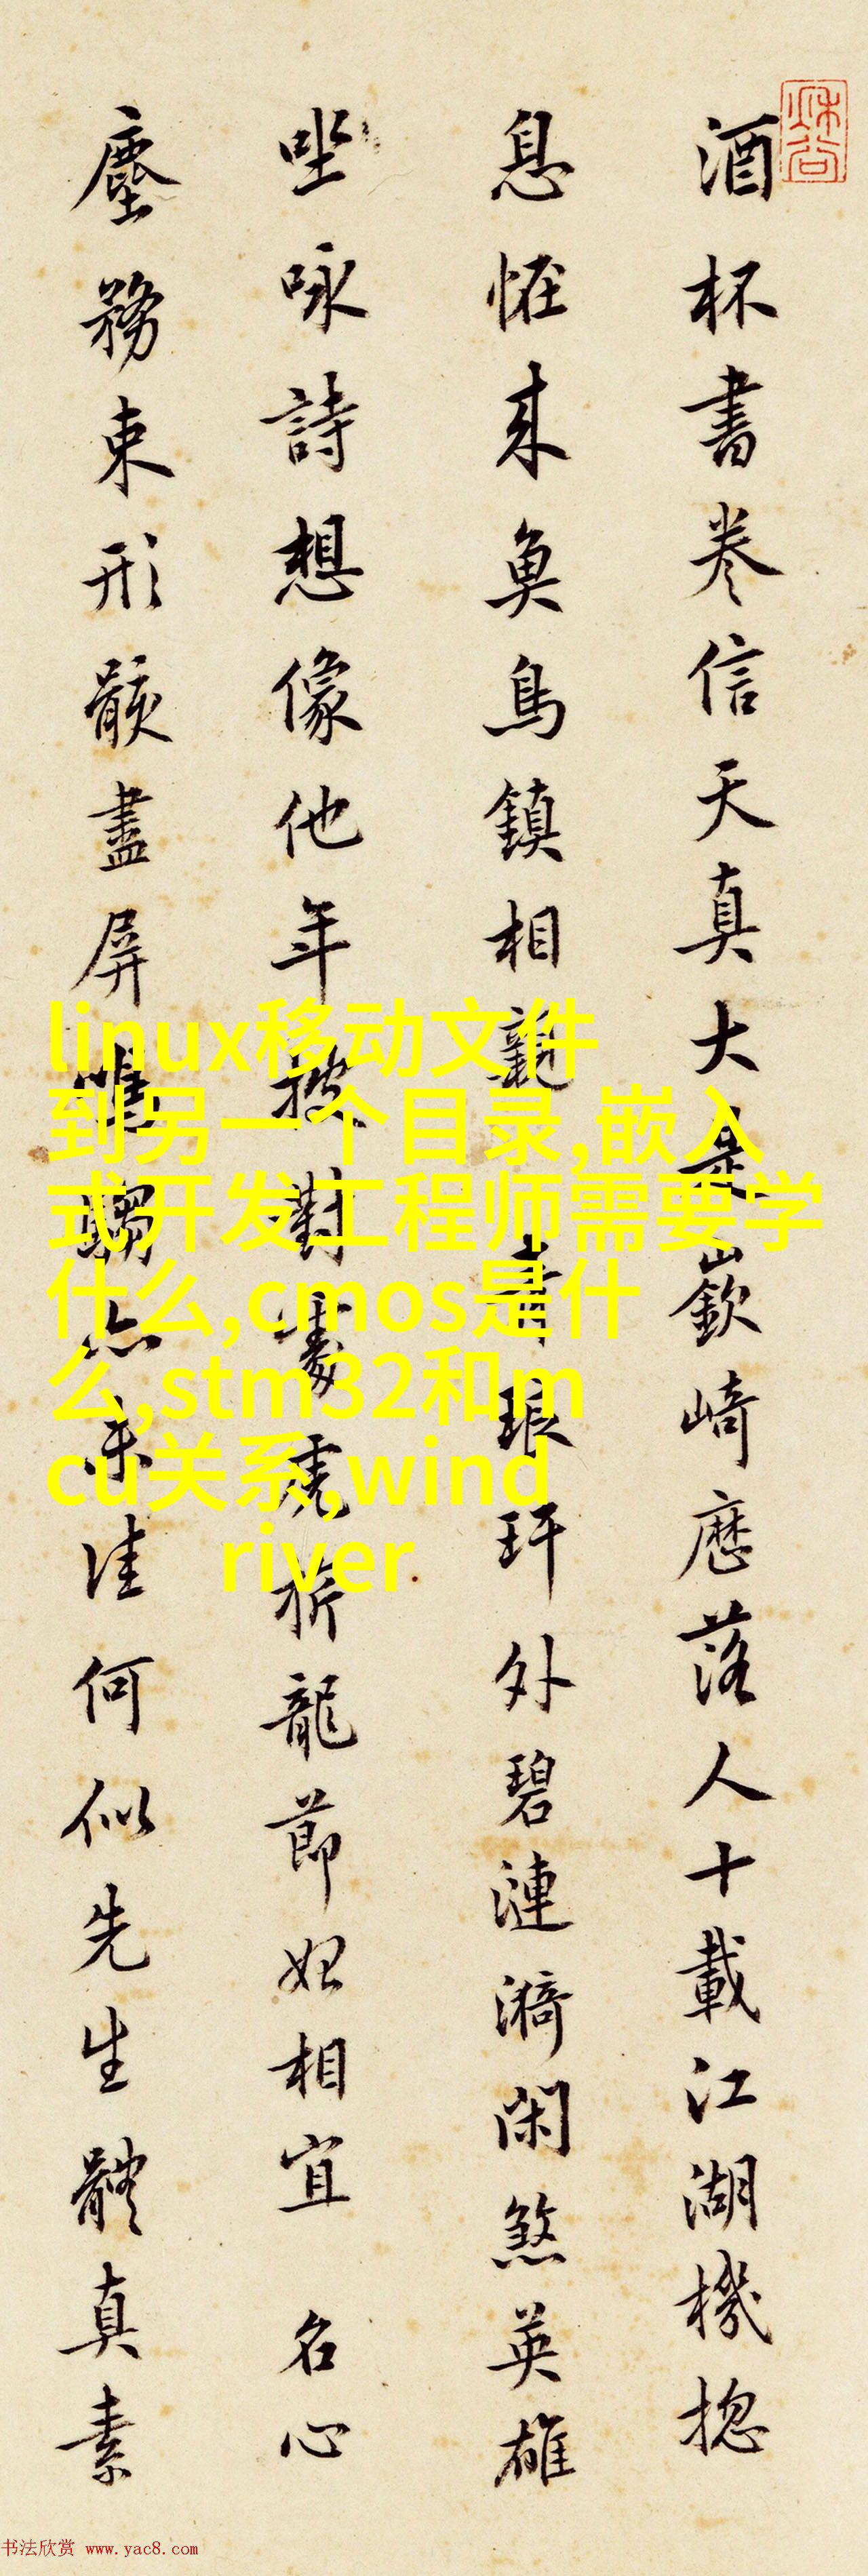 酒杯書卷信天真大是嶔崎歷落人十載江湖機抝
息怪來魚鳥鎮相親 青琅玕外碧漣漪閑煞英雄
坐咏詩想像他年披對處虎旂龍節好相宜 名心
塵務束形骸盡屏 亦未佳何似先生體真素
linux移动文件
到另一个目录,嵌入
式开发工程师需要学
什么,cmos是什
么,stm32和m
cu关系,wind
river
书法欣赏 www.yac8.com